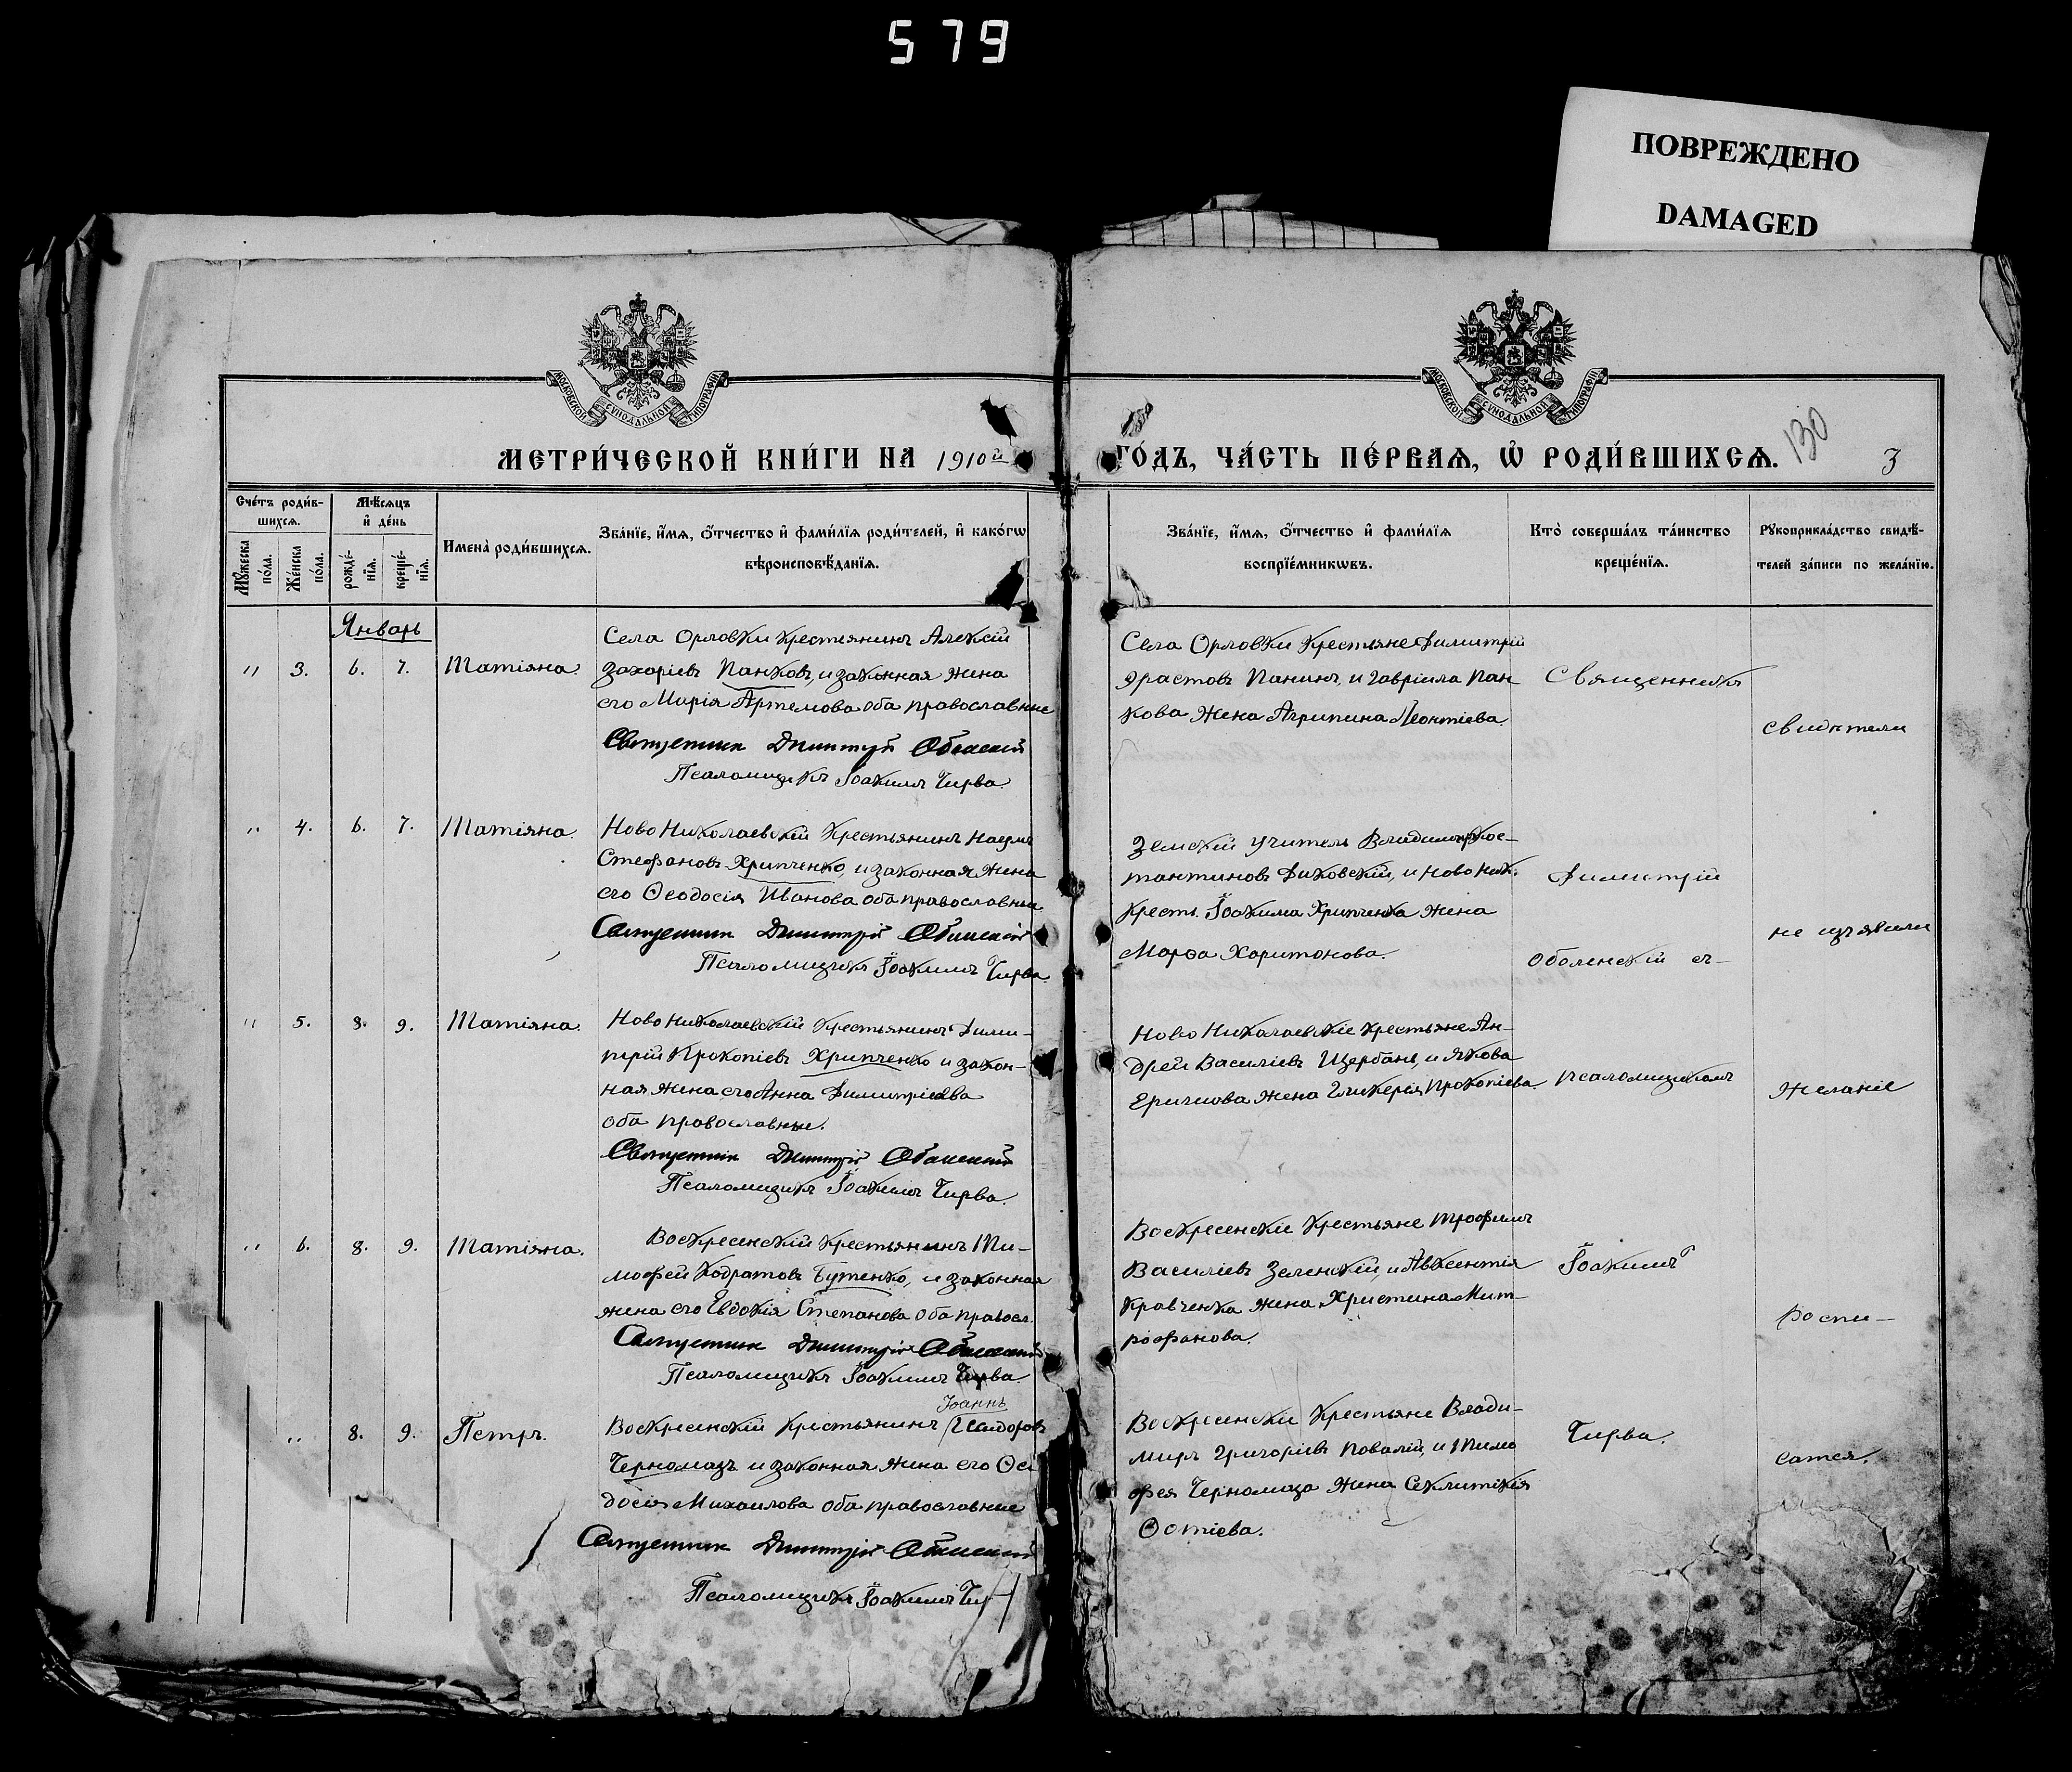 579
ПОВРЕЖДЕНО
DAMAGED
МОСКОВСКОЙ СѴНОДАЛЬНОЙ ТИПОГРАФІИ
МОСКОВСКОЙ СѴНОДАЛЬНОЙ ТИПОГРАФІИ
МЕТРИ́ЧЕСКОЙ КНИ́ГИ НА 1910й ГО́ДЪ, ЧА́СТЬ ПЕ́РВАѦ, Ѡ҆ РОДИ́ВШИХСѦ.
130
3
Сче́тъ роди́в-
шихсѧ.
Мꙋ́жеска
по́ла.
Же́нска
по́ла.
Мѣ́сѧцъ
и҆ де́нь
рожде́-
нїѧ.
креще́-
нїѧ.
Имена̀ роди́вшихсѧ.
Зва́нїе, и҆́мѧ, ѻ҆́тчество и҆ фами́лїѧ роди́телей, и҆ како́гѡ
вѣроисповѣ́данїѧ.
Зва́нїе, и҆́мѧ, ѻ҆́тчество и҆ фами́лїѧ
воспрїе́мникѡвъ.
Кто̀ соверша́лъ та́инство
креще́нїѧ.
Рꙋкоприкла́дство свидѣ́-
телей за́писи по жела́нїю.
Январь
" 3. 6. 7. Татіяна.
Села Орловки крестьянинъ Алексій
Захаріевъ Панковъ, и законная жена
его Марія Артемова оба православные
Священник Димитрій Оболенскій
Псаломщикъ Іоакимъ Чирва.
Села Орловки крестьяне Димитрій
Ярастовъ Панинъ, и Гавріила Пан
кова жена Агрипина Леонтіева.
Священникъ
свидѣтели
" 4. 6. 7. Татіяна.
Ново Николаевскій крестьянинъ Наумъ
Стефановъ Хрипченко, и законная жена
его Ѳеодосія Иванова оба православные
Священник Димитрій Оболенскій
Псаломщикъ Іоакимъ Чирва.
Земскій учитель Владиміръ Кос-
тантиновъ Диковскій, и Ново Ник.
Кресть. Іоакима Хрипченка жена
Марѳа Харитонова.
Димитрій
Оболенскій съ
не изъявили
" 5. 8. 9. Татіяна.
Ново Николаевскій крестьянинъ Дими-
трій Прокопіевъ Хрипченко и закон-
ная жена его Анна Димитріева
оба православные.
Священник Димитрій Оболенскій
Псаломщикъ Іоакимъ Чирва.
Ново Николаевскіе крестьяне Ан-
дрей Василіевъ Щербань, и Якова
жена Гликерія Прокопіева.
псаломщикомъ
желаніе
" 6. 8. 9. Татіяна.
Воскресенскій крестьянинъ Ти-
мофей Кодратовъ Бутенко, и законная
жена его Евдокія Степанова оба правосл.
Священник Димитрій Оболенскій
Псаломщикъ Іоакимъ Чирва.
Воскресенскіе крестьяне Трофимъ
Василіевъ Зеленскій, и Авксентія
Кравченка жена Христина Мит-
рофанова.
Іоакимъ
роспи-
" 8. 9. Петръ.
Іоаннъ
Воскресенскій крестьянинъ Исидоровъ
Черномазъ и законная жена его Ѳео
досія Михаилова оба православные
Священник Димитрій Оболенскій
Псаломщикъ Іоакимъ Чир
Воскресенскіе крестьяне Влади-
миръ Григоріевъ Повалій, и Тимо
фея Черномаза жена Секлитикія
Ѳотіева.
Чирва.
сатся.